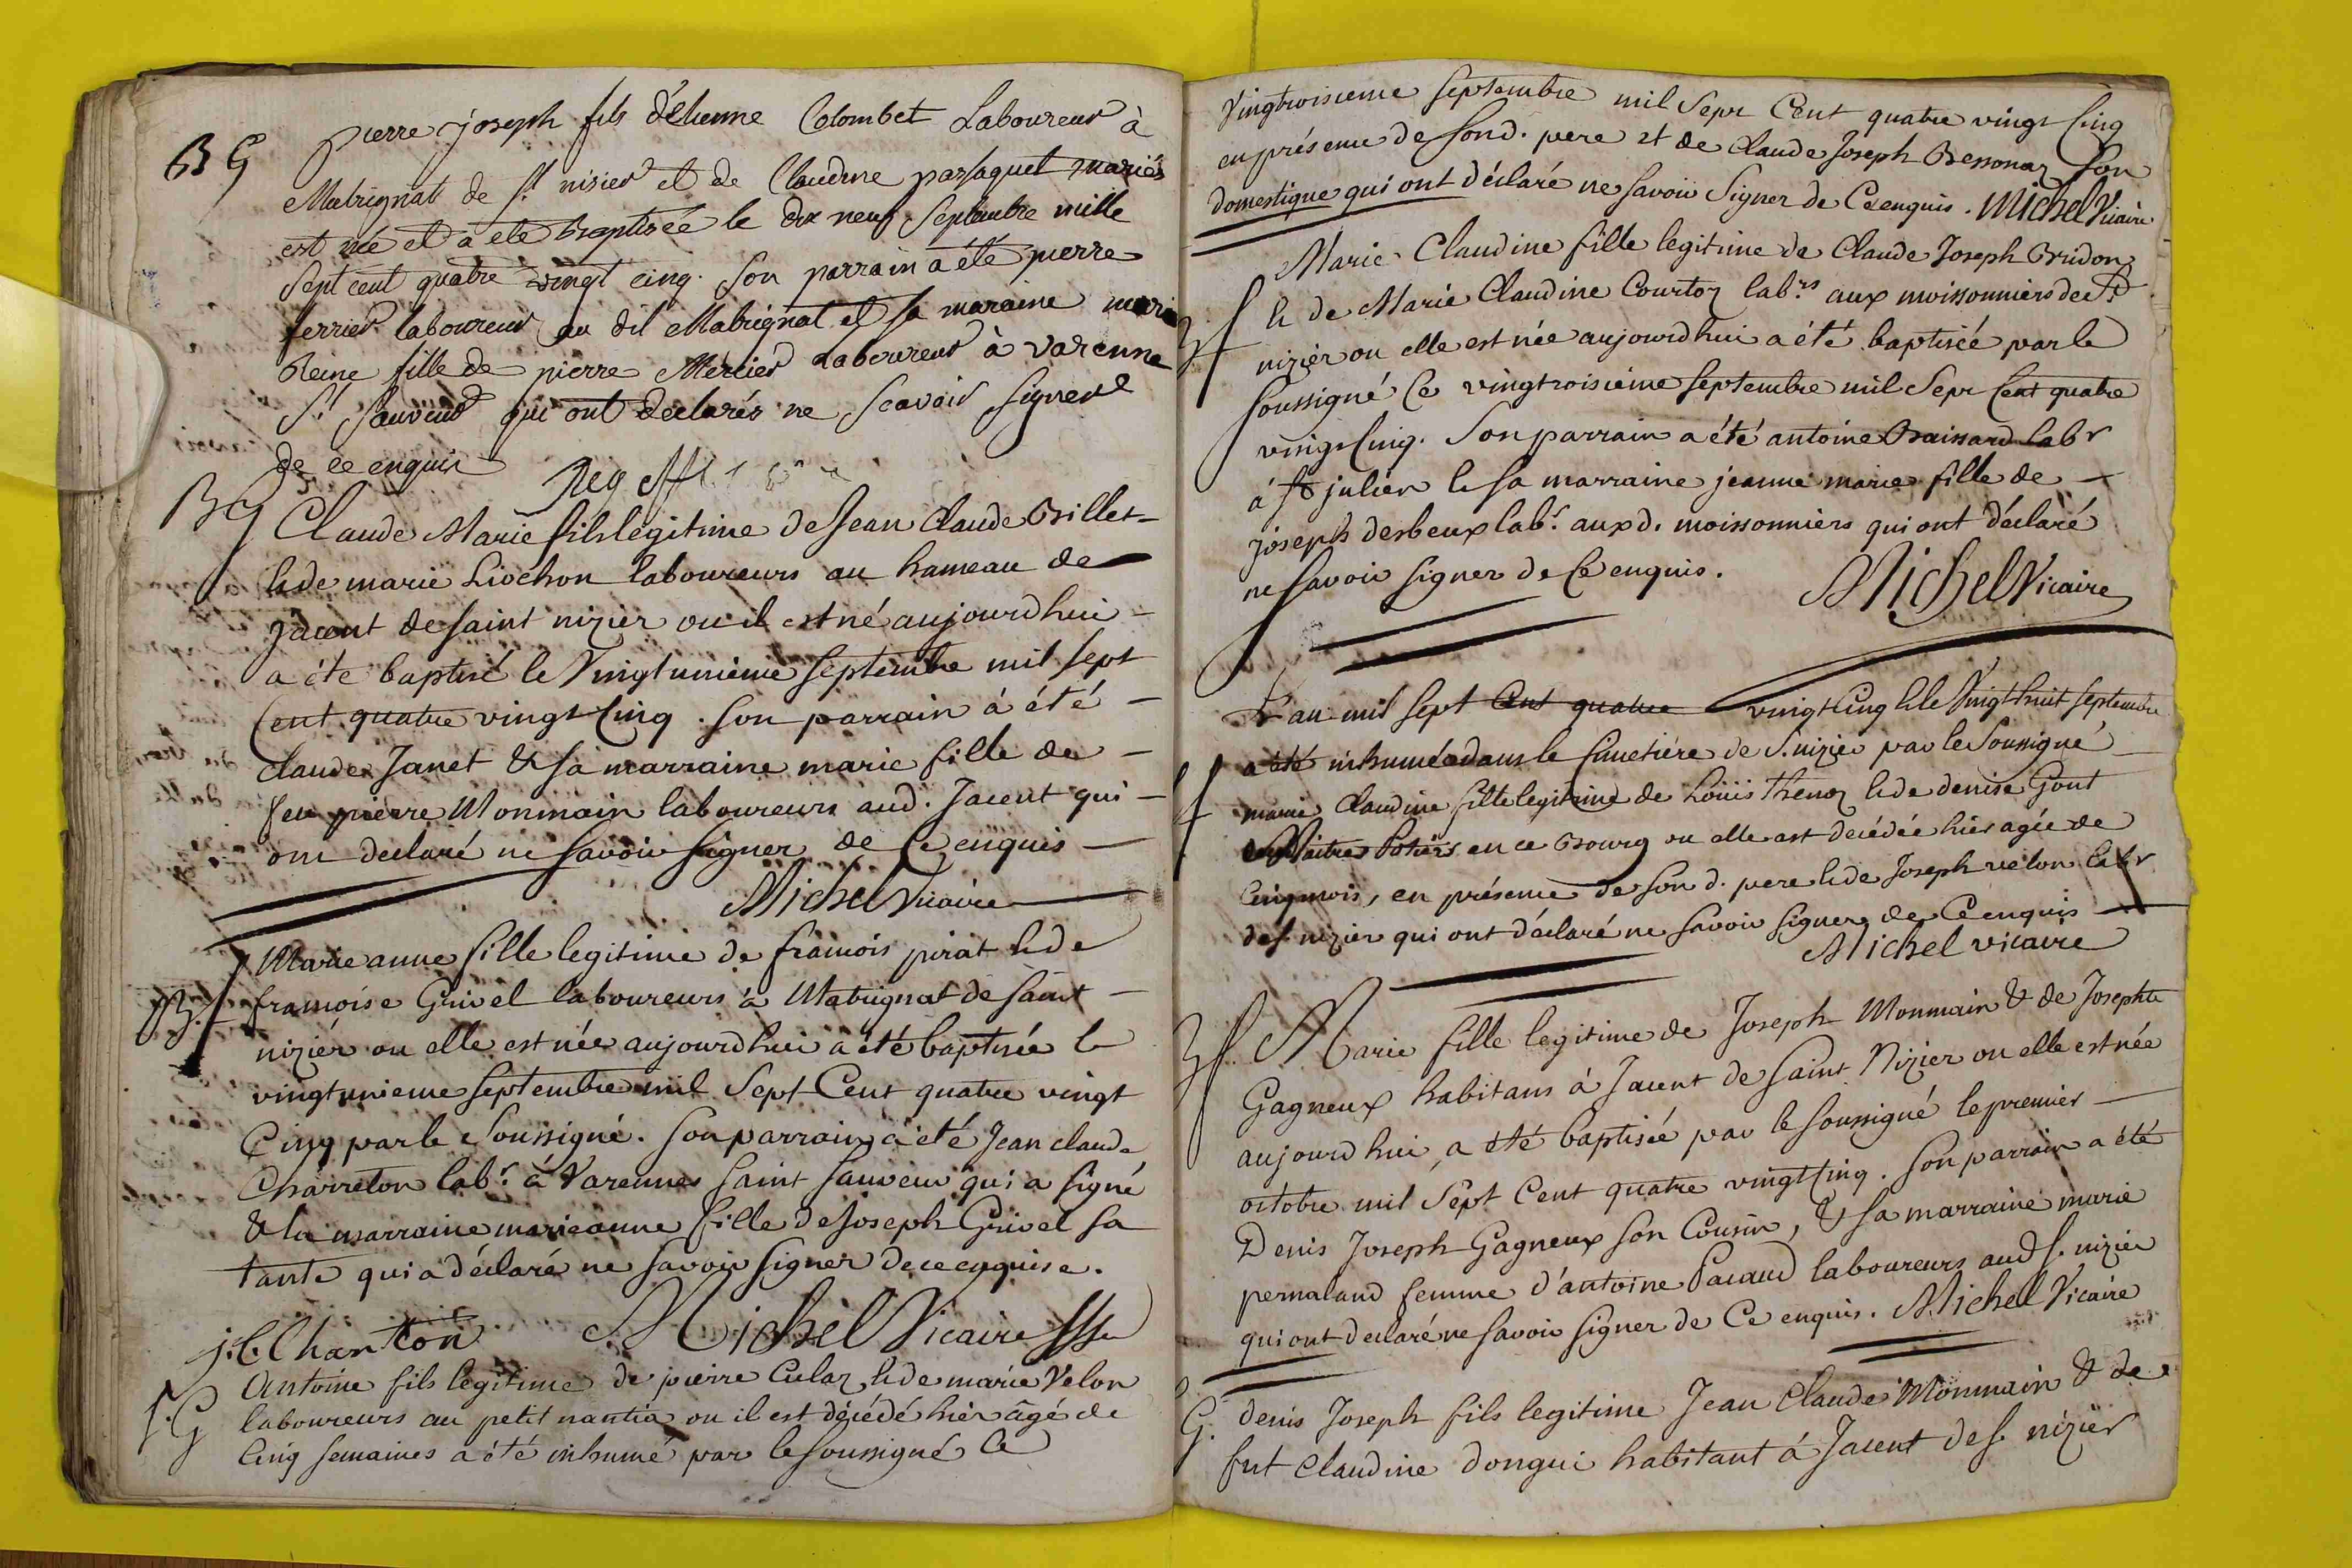 B G Pierre joseph fils d'étienne Colombet Laboureur à
Matrignat de St nisier et de Claudine passaquet mariés
est née et a été baptisée le dix neuf Septembre mille
Sept cent quatre vingt cinq. Son parrain a été pierre
ferrier laboureur au dit Matrignat et sa maraine marie
Reine fille de pierre Mercier Laboureur à varenne
St Sauveur qui ont declarés ne scavoir signer
de ce enquis
BG Claude Marie fils legitime de Jean Claude Billet
& de marie Liochon laboureurs au hameau de
Jacent de saint nizier ou il est né aujourdhui
a éte baptisé le Vingtunième Septembre mil sept
Cent quatre vingt Cinq. son parrain à été
claude Janet & sa marraine marie fille de
feu pierre Monmain laboureurs aud. Jacent qui
ont declaré ne savoir signer de Ce enquis
Michel Vicaire
B.f Marie anne fille legitime de francois pirat & de
francoise Grivel laboureurs à Matrignat de saint
nizier ou elle est née aujourdhui a été baptisée le
vingtunieme septembre mil Sept Cent quatre vingt
Cinq par le soussigné. son parrain a été Jean claude
Charreton labr. à Varennes saint sauveur qui a signé
& la marraine marieanne fille de Joseph Grivel sa
tante qui a déclaré ne savoir signer de ce enquise.
j.C. Charton Michel Vicaire
f.G Antoine fils legitime de pierre Culaz & de marie Velon
laboureurs au petit nantia ou il est décédé hier âgé de
Cinq semaines a été inhumé par le soussigné Ce
Vingtroisieme septembre mil Sept Cent quatre vingt Cinq
en présence de son d. pere et de Claude Joseph Bessonaz son
domestique qui ont déclaré ne savoir Signer de Ce enquis. Michel Vicaire
B f Marie Claudine fille legitime de Claude Joseph Bridon
& de Marie Claudine Courtoz labrs aux moissonniers de St
nizier ou elle est née aujourdhui a été baptisée par le
soussigné Ce vingtroisième septembre mil Sept Cent quatre
vingt Cinq. Son parrain a été antoine Braissard labr
à St julien & sa marraine jeanne marie fille de
joseph desbeux labr. aux d. moissonniers qui ont déclaré
ne savoir signer de Ce enquis.
Michel Vicaire
L'an mil sept Cent quatre vingt Cinq & le Vingt huit septembre
a été inhumée dans le Cimetiére de S. nizier par le Soussigné
f marie Claudine fille legitime de Loüis thenoz & de denise Gout
en ce Bourg ou elle est decédée hier agée de
Cinq mois, en présence de son d. pere & de Joseph velon labr
de S. nizier qui ont déclaré ne savoir signer de Ce enquis
Michel vicaire
B f. Marie fille legitime de Joseph Monmain & de Josephte
Gagneux habitans à Jacent de Saint Nizier ou elle est née
aujourdhui, a été baptisée par le soussigné le premier
octobre mil Sept Cent quatre vingt Cinq. son parrain a été
Denis Joseph Gagneux son Cousin, & sa marraine marie
pernaland femme d'antoine Pacaud laboureurs aud S. nizier
qui ont declaré ne savoir signer de Ce enquis. Michel Vicaire
G. denis Joseph fils legitime Jean Claude Monmain & de
fut Claudine dongui habitant à Jacent de S. nizier